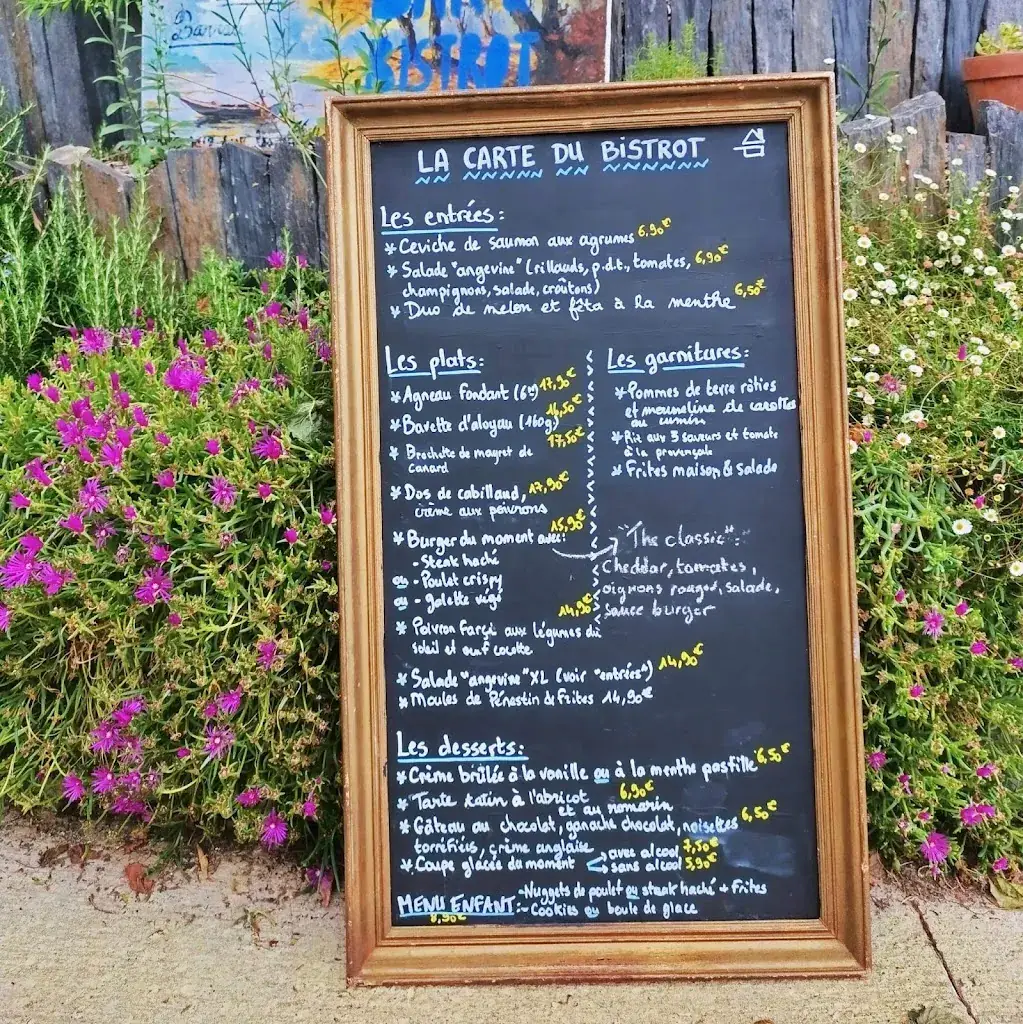 BISTROT
LA CARTE DU BISTROT
Les entrées:
* Ceviche de saumon aux agrumes 6,90€
* Salade "angevine" (rillauds, p.d.t., tomates, 6,90€
champignons, salade, croûtons)
* Duo de melon et fêta à la menthe 6,50€
Les plats:
* Agneau fondant (6h) 17,90€
* Bavette d'aloyau (160g) 16,50€
* Brochette de magret de 17,50€
canard
* Dos de cabillaud, 17,90€
crème aux poivrons
* Burger du moment avec: 15,90€
- Steak haché
ou - Poulet crispy
ou - galette végé
* Poivron farçi aux légumes du 14,90€
soleil et œuf cocotte
* Salade "angevine" XL (voir "entrées") 14,90€
* Moules de Pénestin & Frites 14,90€
Les garnitures:
* Pommes de terre rôties
et mousseline de carottes
au cumin
* Riz aux 3 saveurs et tomate
à la provençale
* Frites maison & Salade
"The classic":
Cheddar, tomates,
oignons rouges, salade,
sauce burger
Les desserts:
* Crème brûlée à la vanille ou à la menthe pastille 6,50€
* Tarte tatin à l'abricot 6,90€
et au romarin
* Gâteau au chocolat, ganache chocolat, noisettes 6,50€
torréfiées, crème anglaise
* Coupe glacée du moment
avec alcool 7,50€
sans alcool 5,90€
MENU ENFANT: - Nuggets de poulet ou steak haché + Frites
8,90€ - Cookies ou boule de glace